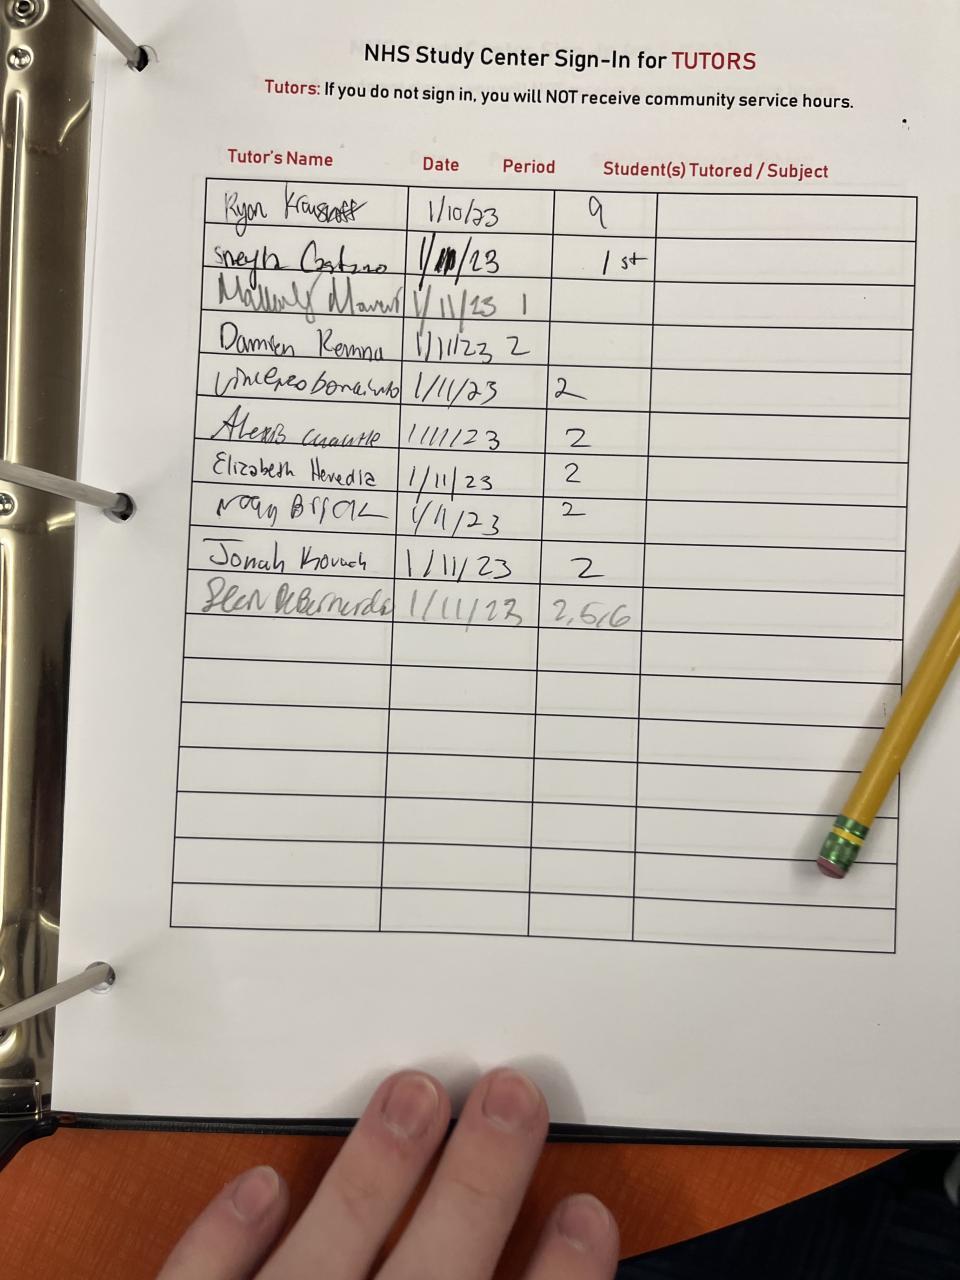 NHS Study Center Sign-In for TUTORS
Tutors: If you do not sign in, you will NOT receive community service hours.
Tutor's Name Date Period Student(s) Tutored / Subject
Ryan 1/10/23 9
1/ /23 1st
1/11/23 1
Damien 1/11/23 2
1/11/23 2
Alexis 1/11/23 2
Elizabeth Heredia 1/11/23 2
1/11/23 2
Jonah Kovach 1/11/23 2
Sean DeBernardo 1/11/23 2,5,6